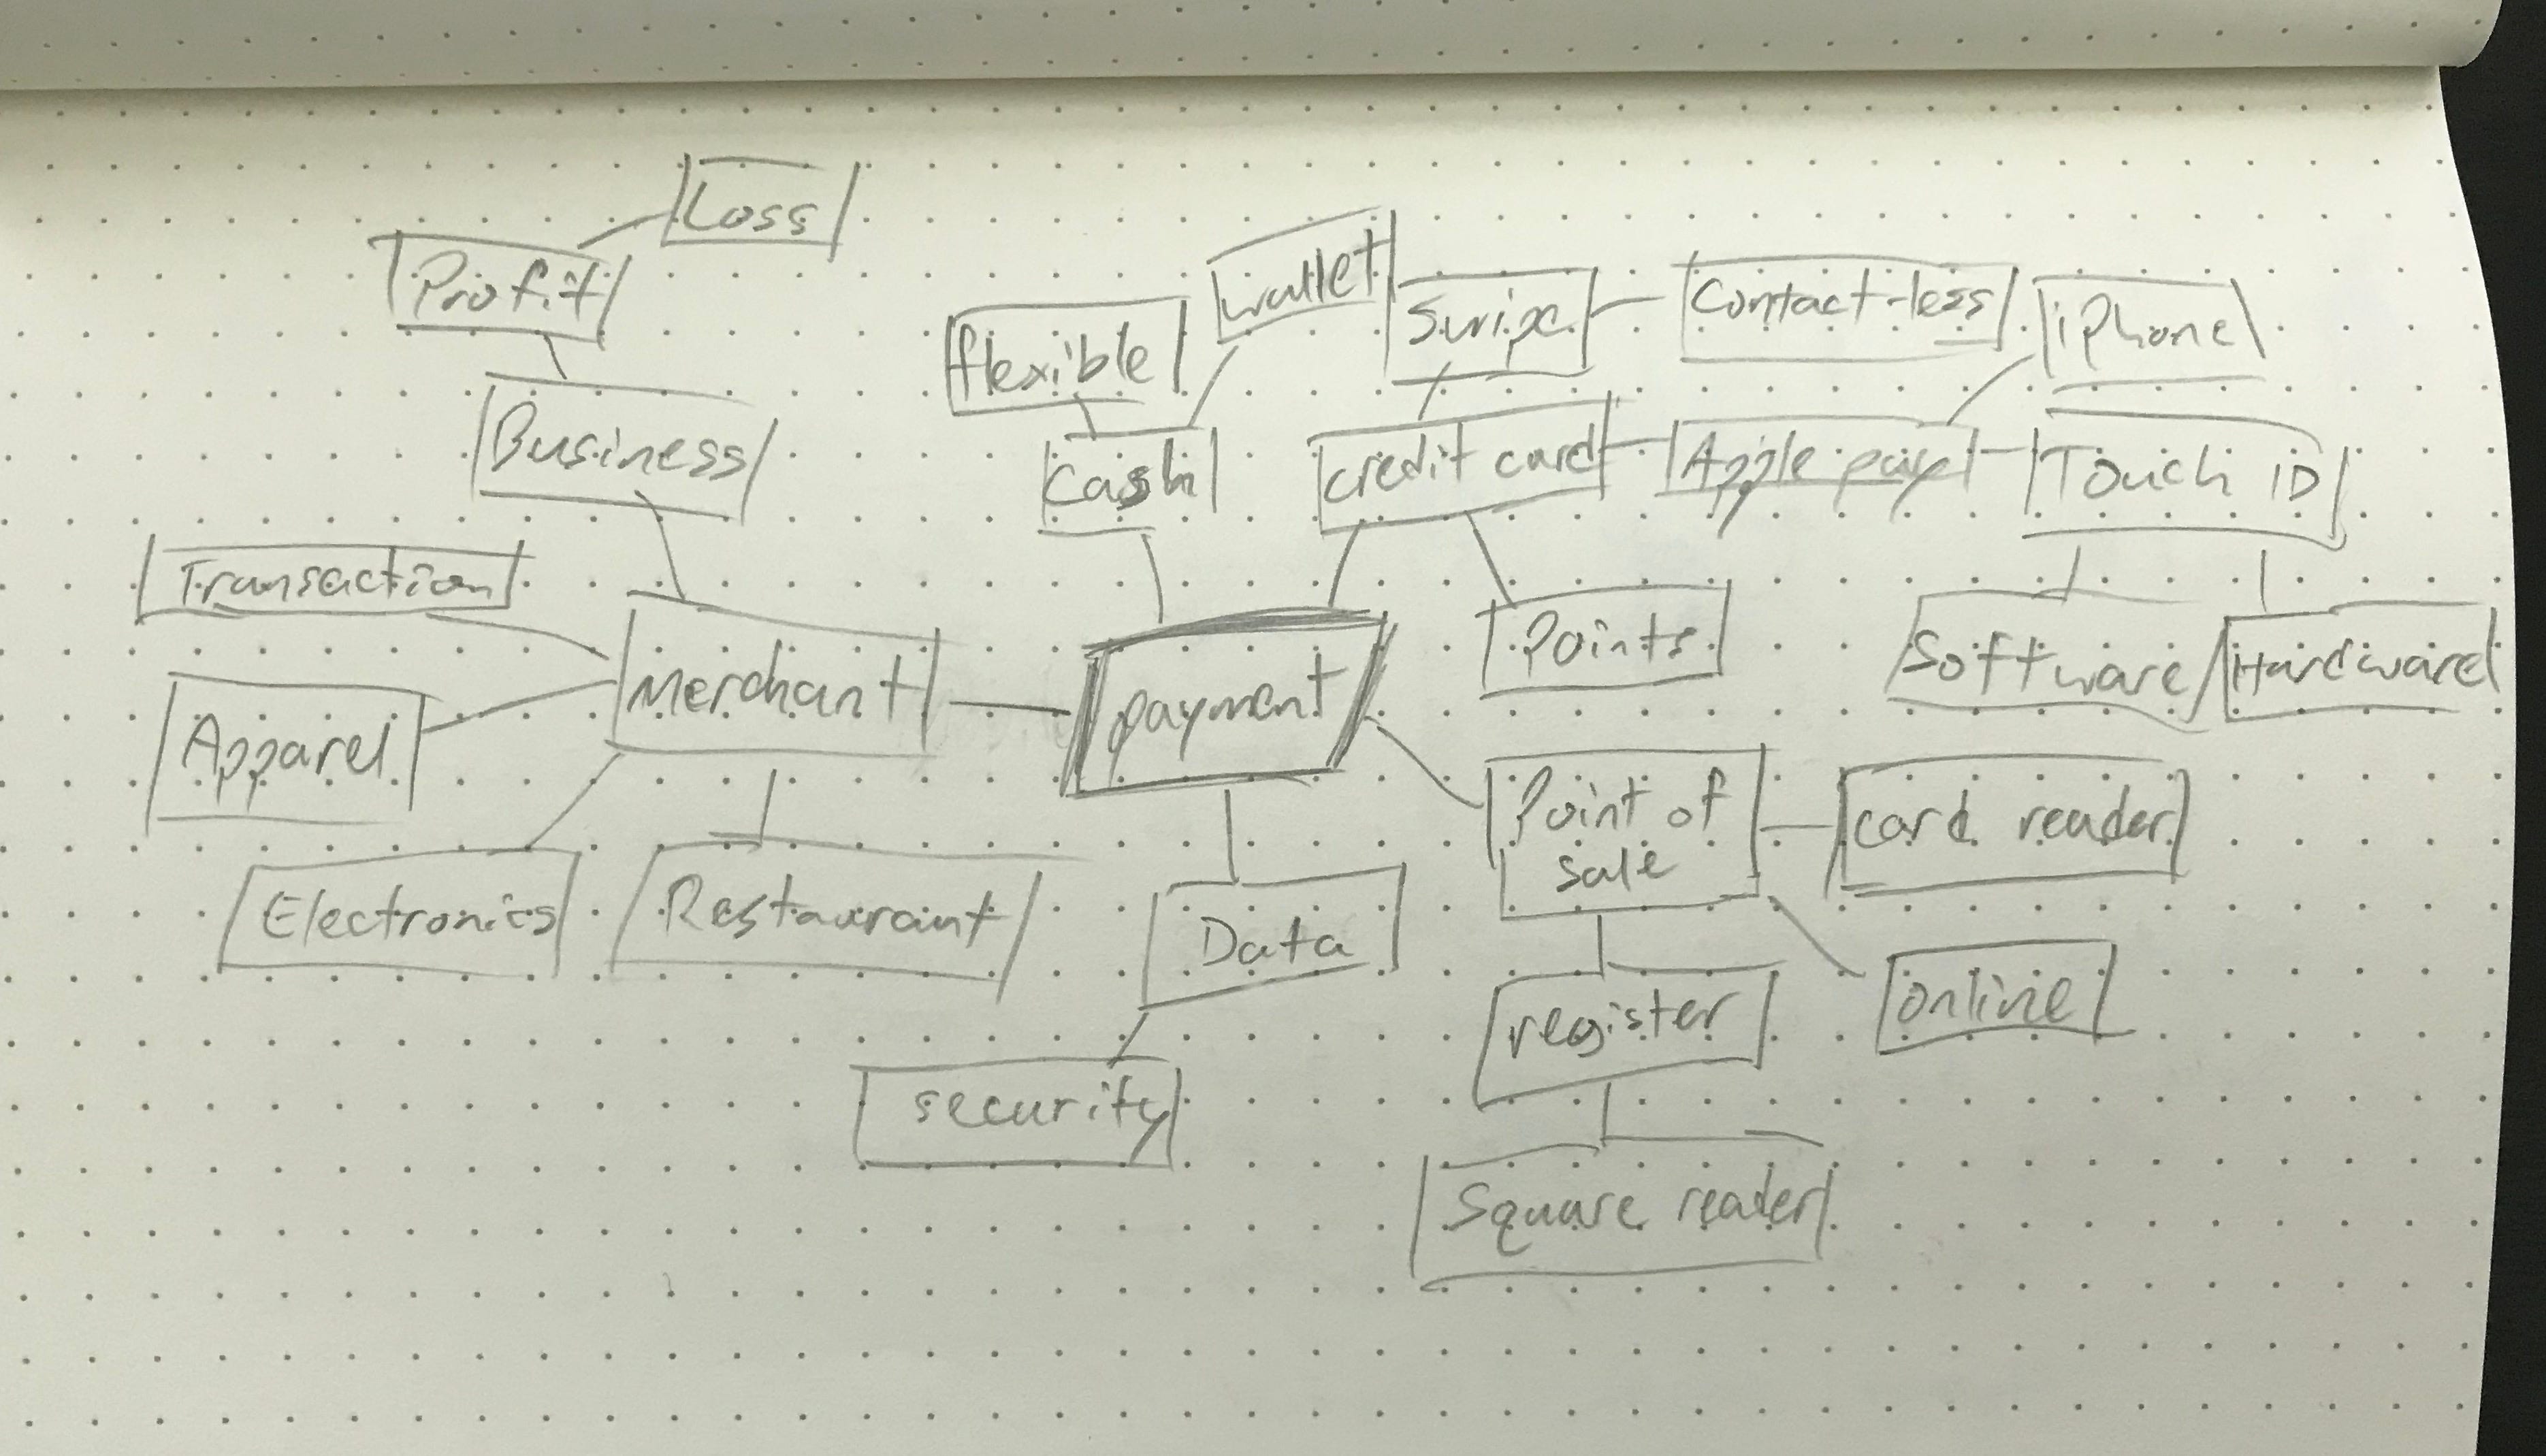 Loss
Profit
wallet
Swipe
Contact-less
iPhone
flexible
Business
Cash
credit card
Apple pay
Touch ID
Transaction
Merchant
payment
Points
Software
Hardware
Apparel
Point of
sale
card reader
Electronics
Restaurant
Data
register
online
security
Square reader